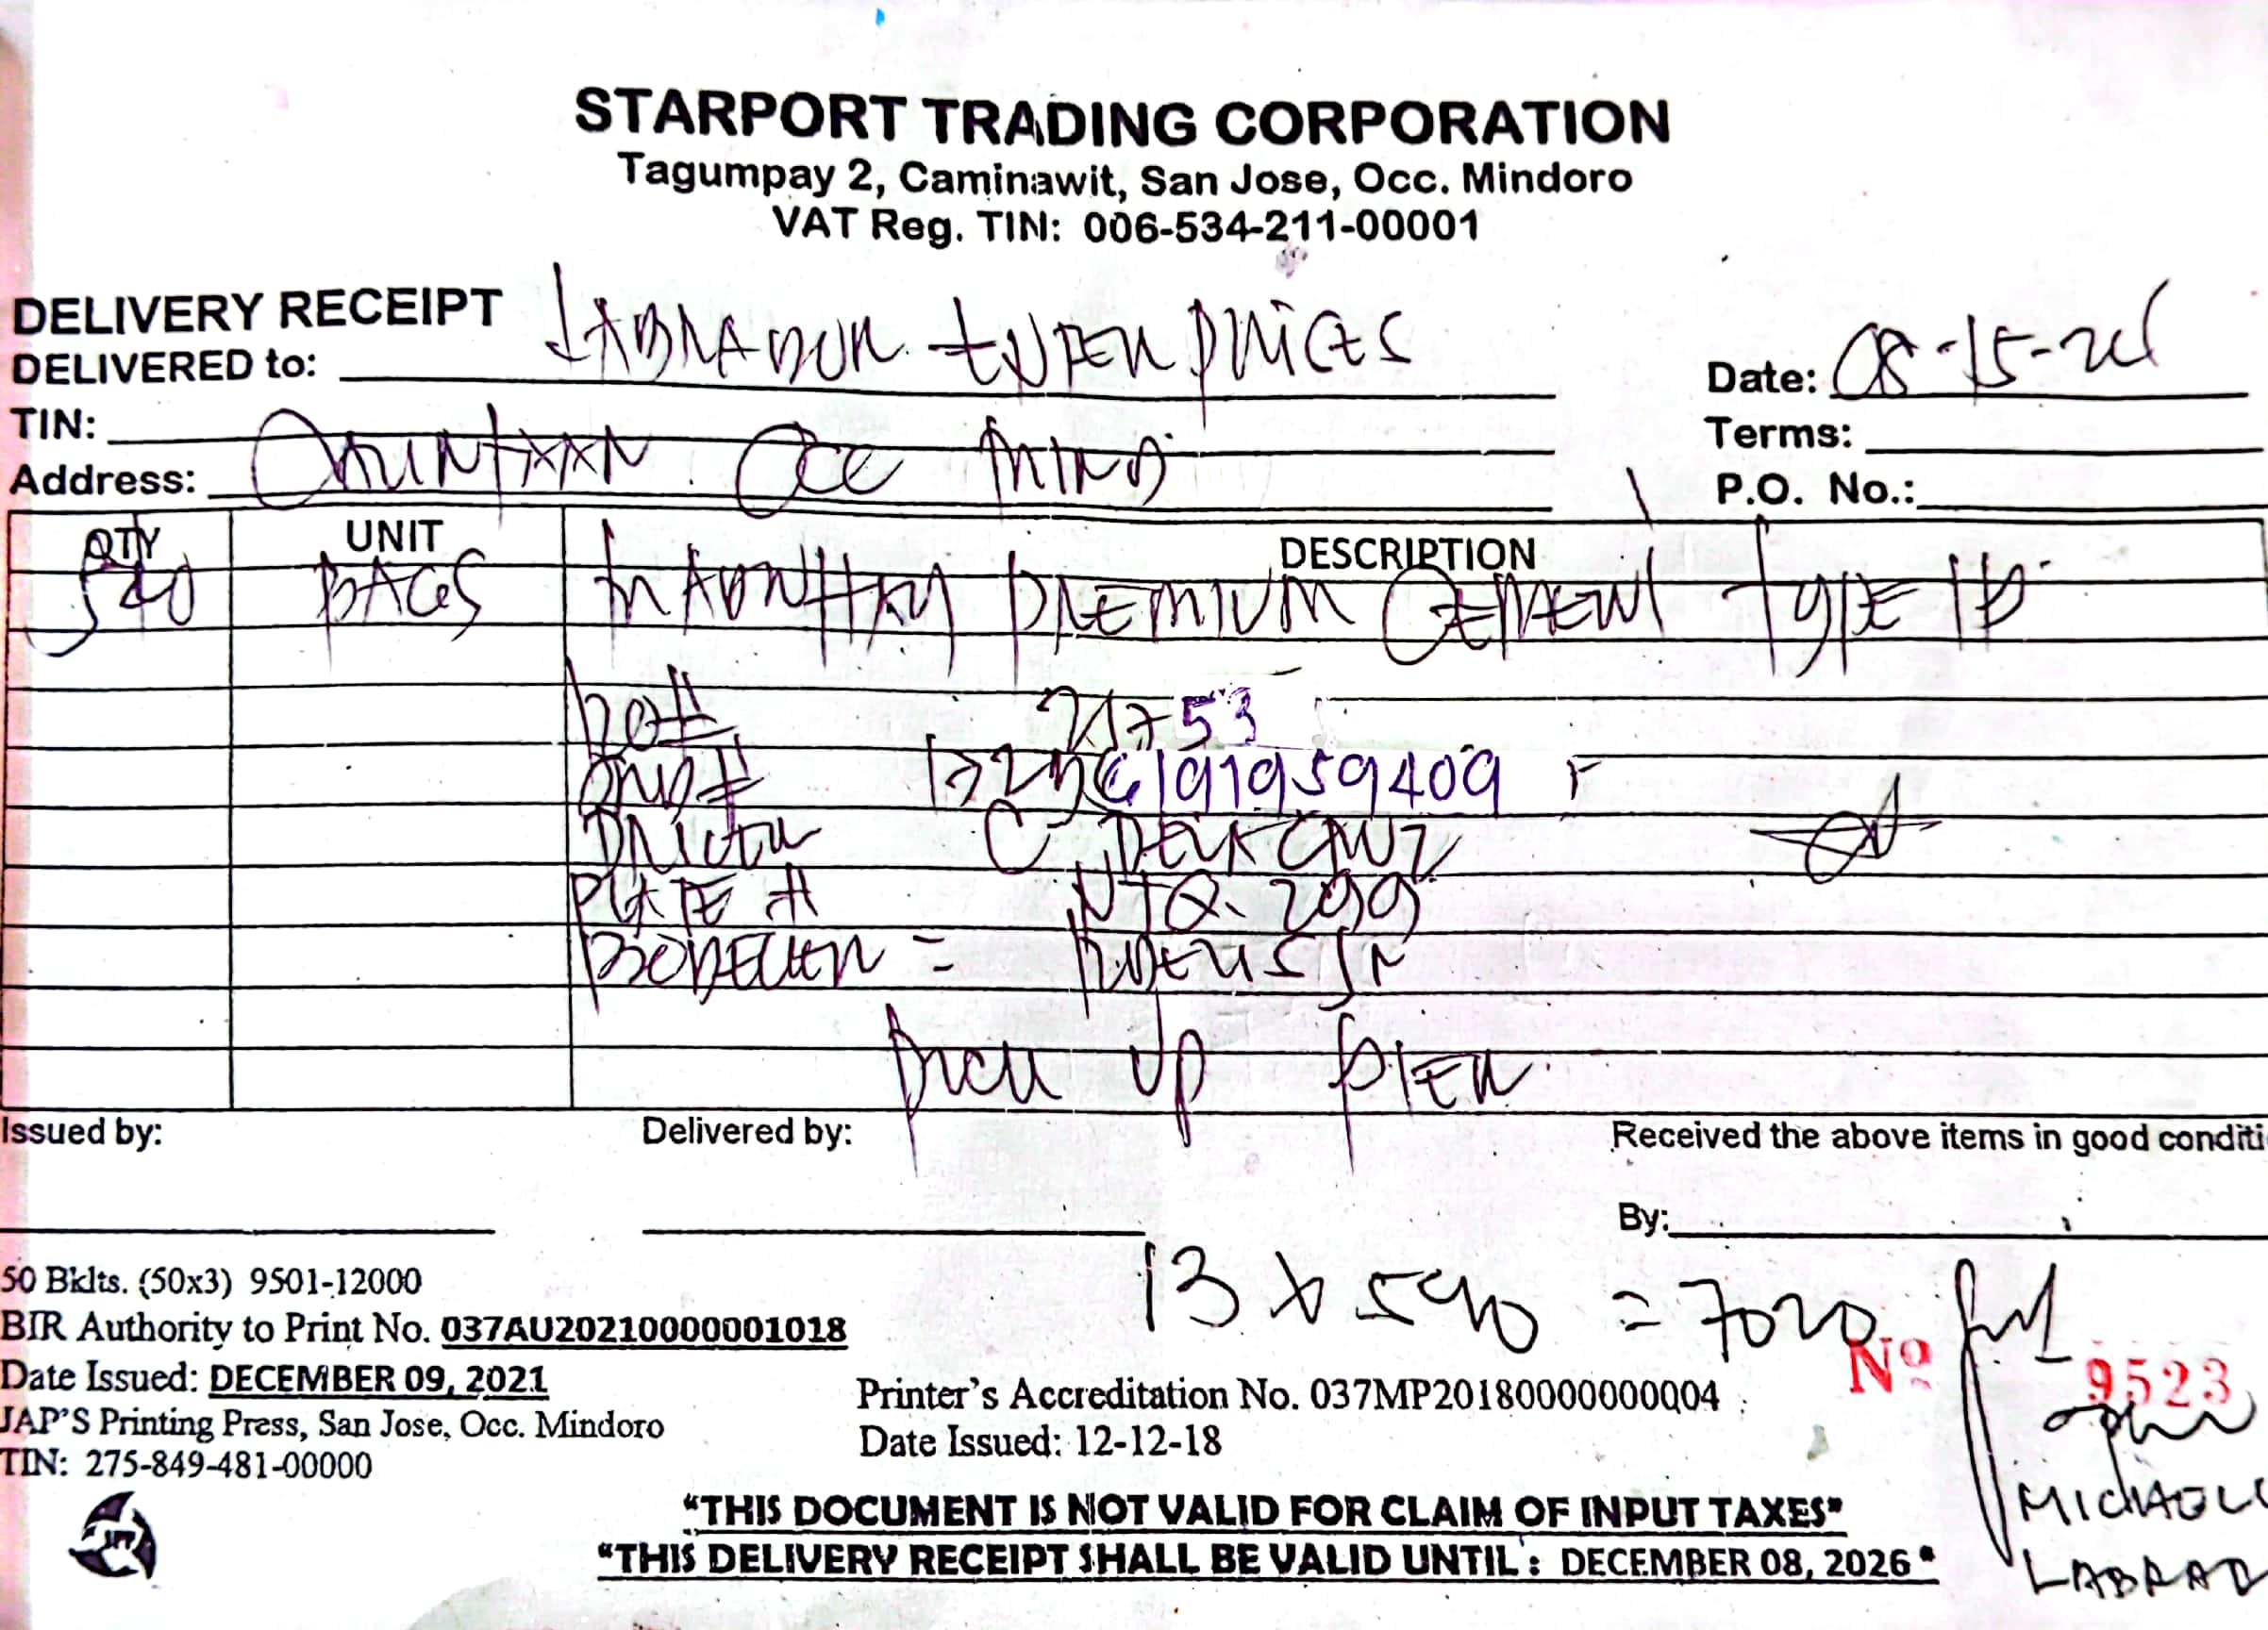 STARPORT TRADING CORPORATION
Tagumpay 2, Caminawit, San Jose, Occ. Mindoro
VAT Reg. TIN: 006-534-211-00001
DELIVERY RECEIPT
DELIVERED to: LABRADOR SUPER PRICES
Date: 08-15-
TIN:
Terms:
Address: OCC MIND
P.O. No.:
QTY UNIT DESCRIPTION
540 BAGS PREMIUM CEMENT TYPE
53
6191959409
DRIVER C
PLATE #
PICK UP PIER
Issued by: Delivered by: Received the above items in good conditi
By:
13 x 540 = 7020
50 Bklts. (50x3) 9501-12000
BIR Authority to Print No. 037AU20210000001018
Date Issued: DECEMBER 09, 2021
JAP'S Printing Press, San Jose, Occ. Mindoro
TIN: 275-849-481-00000
Printer's Accreditation No. 037MP20180000000004
Date Issued: 12-12-18
Nº 9523
MICHAEL
LABRAD
"THIS DOCUMENT IS NOT VALID FOR CLAIM OF INPUT TAXES"
"THIS DELIVERY RECEIPT SHALL BE VALID UNTIL : DECEMBER 08, 2026"